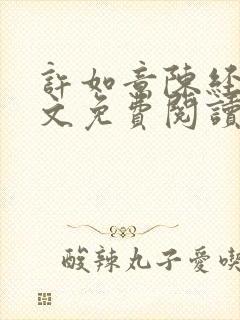 許如意陳経
文免費閱讀
酸辣丸子愛喫